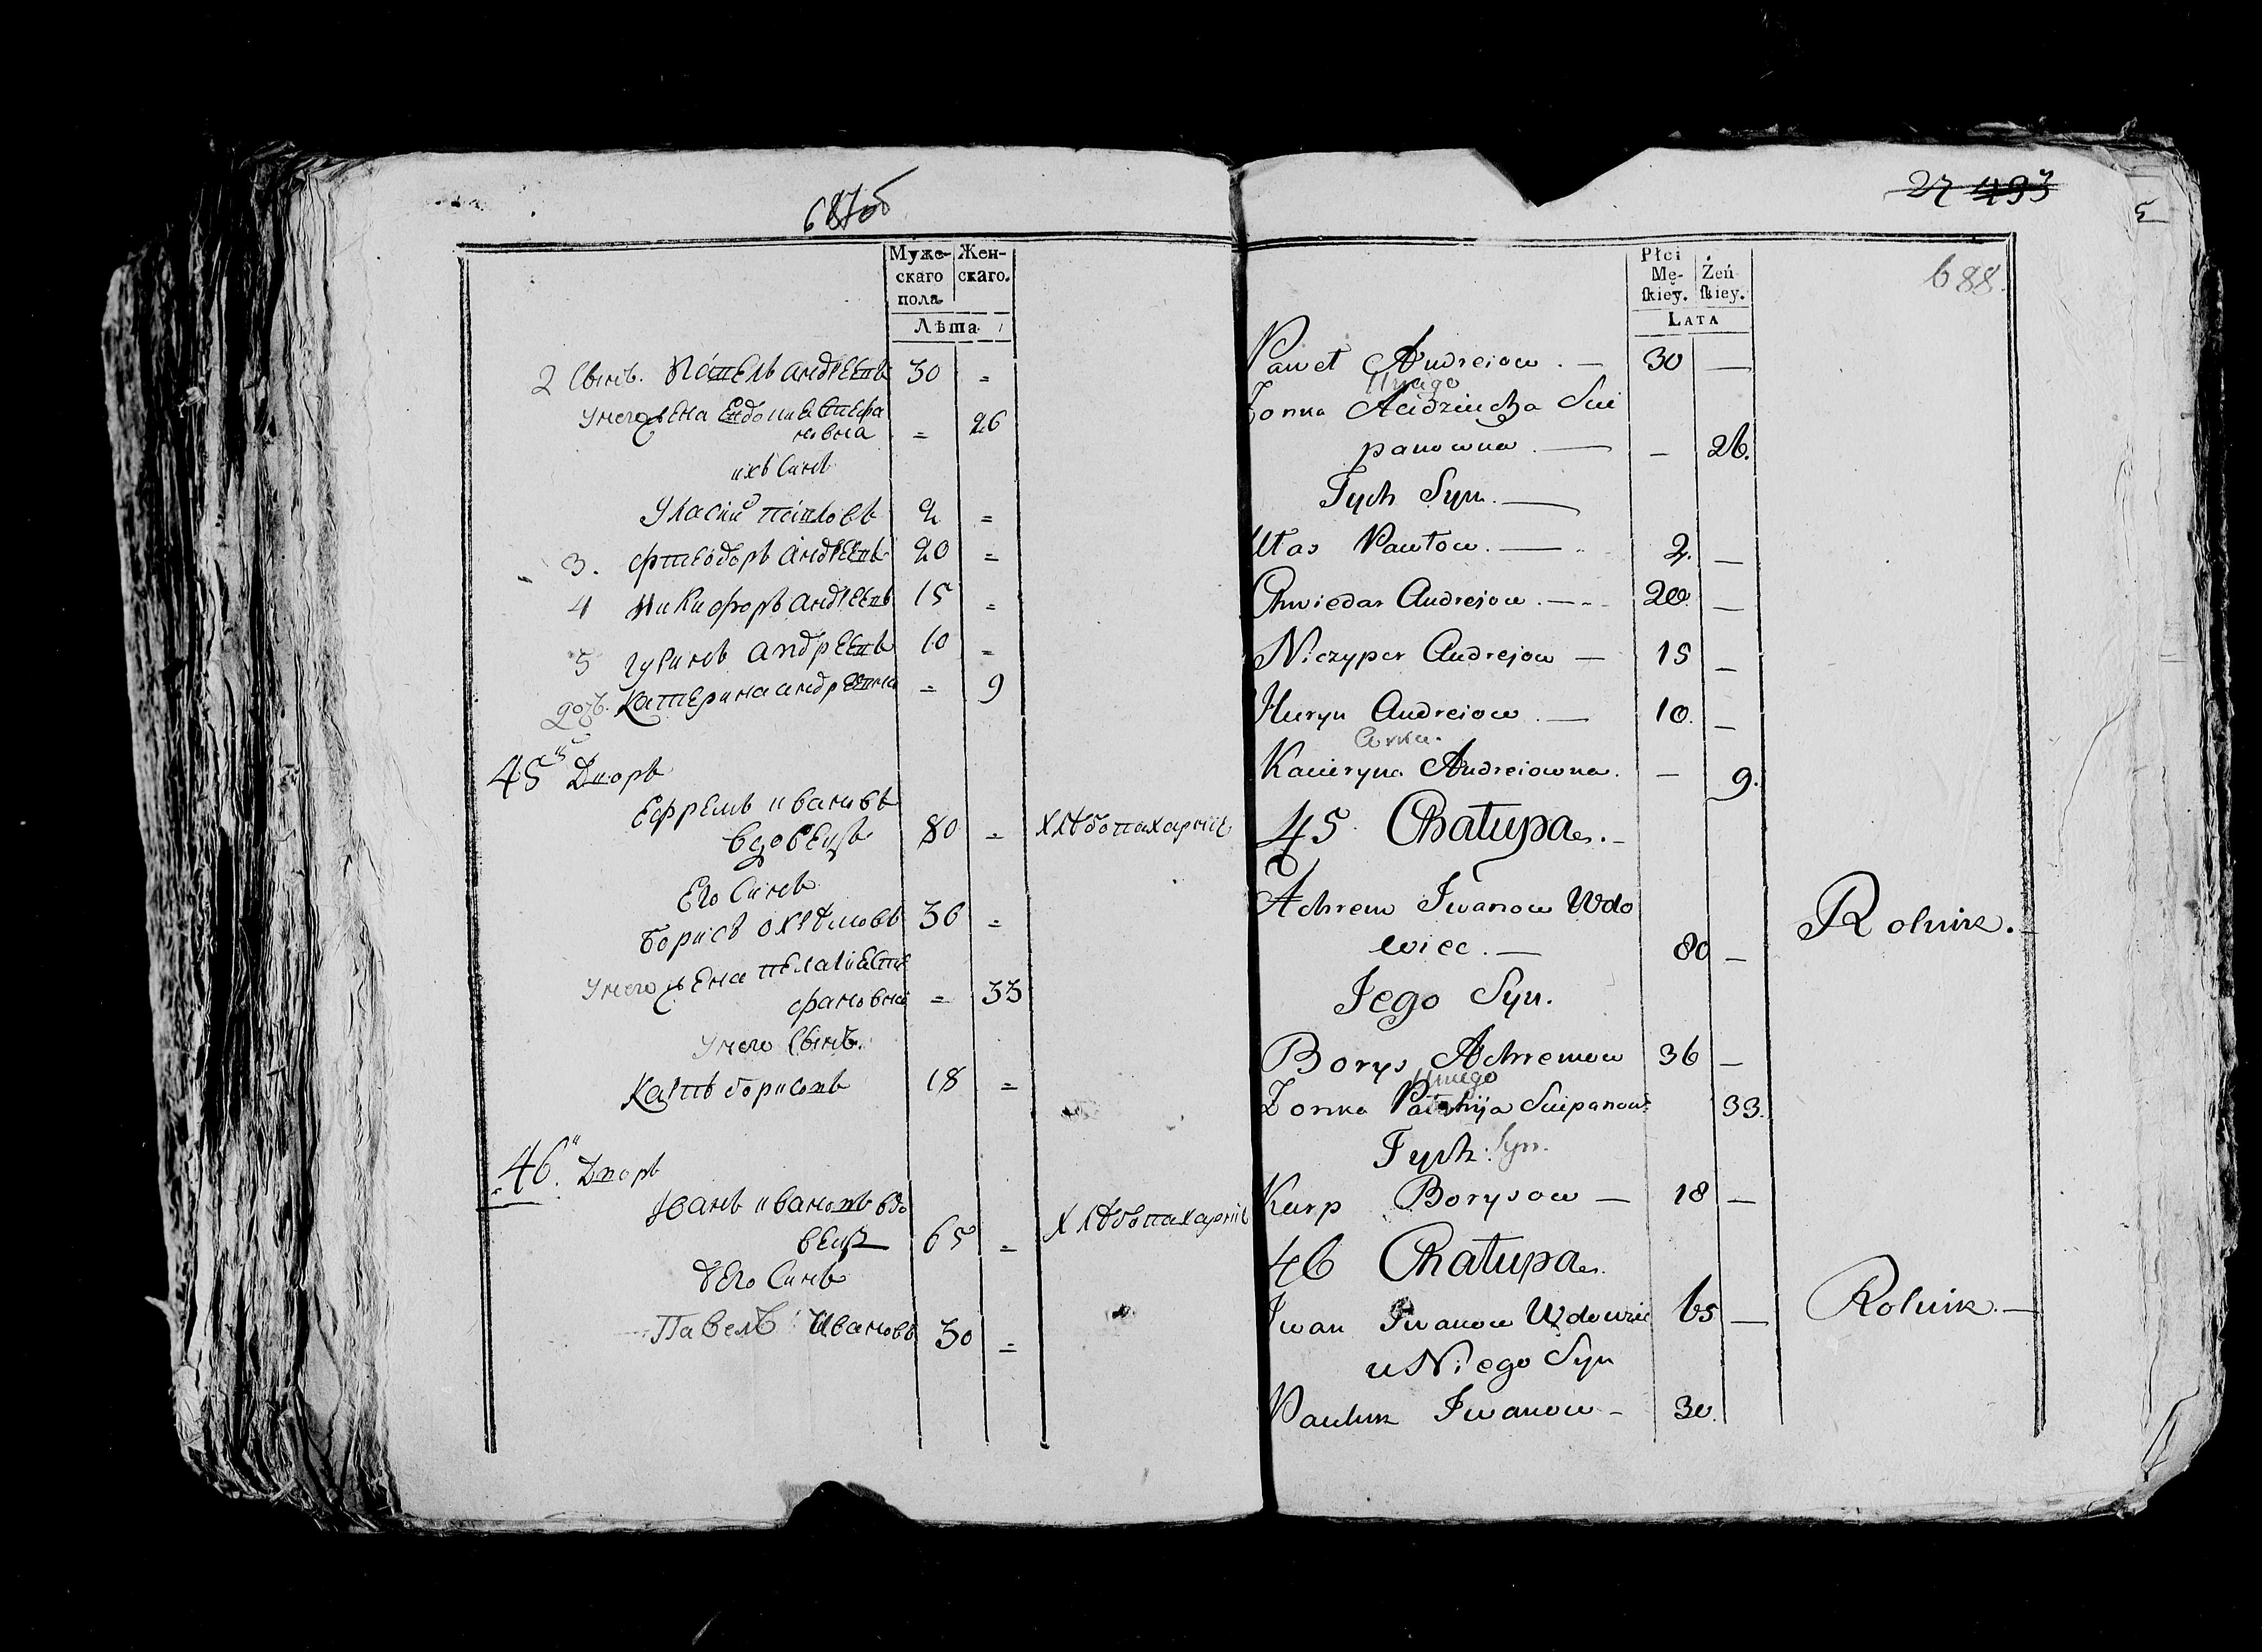 687об
Муже-
скаго
пола.
Жен-
скаго.
Лѣта
2 Сынъ. Павелъ Андреевъ 30 =
У него жена Евдокия Стефа
новна = 26
ихъ Синъ
Уласий Павловъ 2 =
3. Фтеодоръ Андреевъ 20 =
4 Никифоръ Андреевъ 15 =
5 Гуринъ Андреевъ 10 =
дочь. Катерина Андреевна = 9
45й Дворъ
Ефремъ Ивановъ
вдовецъ 80 = хлѣбопахарній
Его Синъ
Борисъ Охрѣмовъ 36 =
У него жена Пелагия Сте
фановна = 33
У него Сынъ.
Карпъ Борисовъ 18 =
46. Дворъ
Иванъ Ивановъ вдо
вецъ 65 = хлѣбопахарній
Его Синъ
Павелъ Ивановъ 30 =
27 493
688.
Płci
Mę-
ſkiey.
Żeń
ſkiey.
LATA
Paweł Andreiow. — 30 —
Unego
Zonka Acidziucha Sci
panowna. — — 26.
Tych Syn. —
Ułas Pawłow. — 2. —
Chwiedar Andrejow. — 20. —
Niczypor Andrejow — 15 —
Huryn Andreiow. — 10. —
Corka.
Kacieryna Andreiowna. — 9.
45. Chatupa. —
Achrem Iwanow Wdo
wiec. — 80 — Rolnik.
Jego Syn.
Borys Achremow 36 —
Unego
Zonka Palahija Scipanow 33.
Tych Syn.
Karp Borysow — 18 —
46 Chatupa.
Iwan Iwanow Wdowiec 65 — Rolnik. —
u Niego Syn
Pauluk Iwanow — 30.